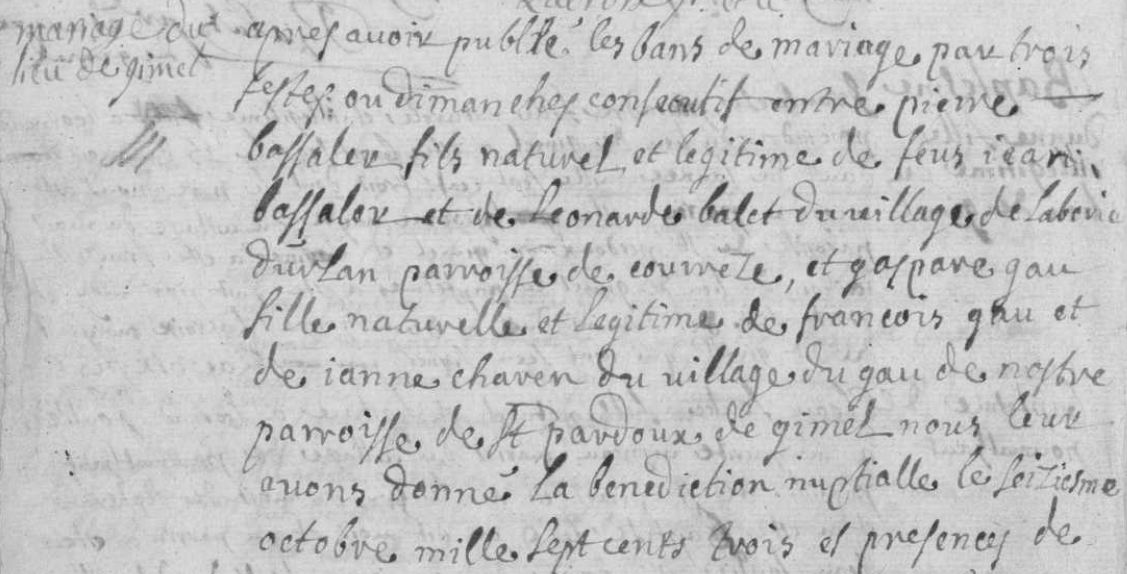 mariage du
lieu de gimel
apres avoir publié les bans de mariage par trois
festes ou dimanches consecutif entre pierre
bassaler fils naturel et legitime de feus iean
bassaler et de Leonarde balet du village de Laborie
durlan parroisse de courreze, et gaspare gau
fille naturelle et legitime de francois gau et
de ianne chaven du village du gau de nostre
parroisse de st pardoux de gimel nous leur
avons donné La benediction nuptialle le seiziesme
octobre mille sept cents trois es presences de